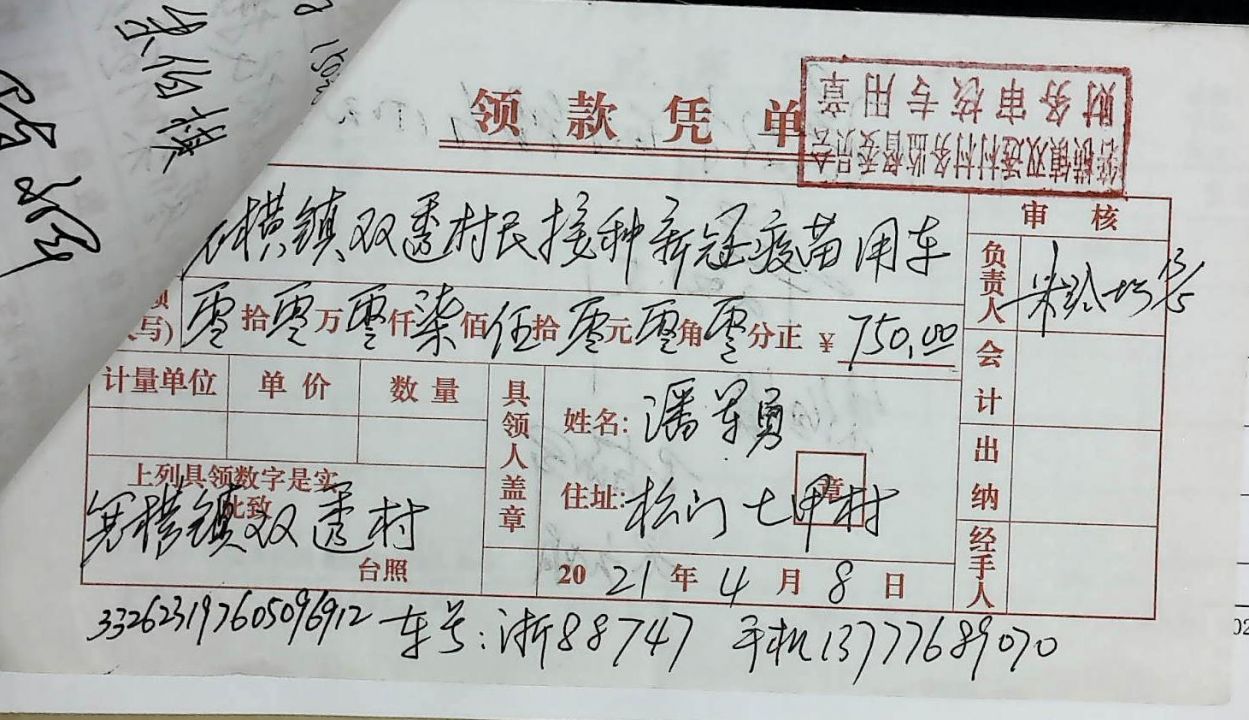 领款凭单
财务审核专用章
箬横镇双透村村务监督委员会
横镇双透村民接种新冠疫苗用车
审核
负责人
13/5
写) 零拾零万零仟柒佰伍拾零元零角零分正 ¥ 750.00
会计
计量单位 单价 数量
具领人盖章
姓名: 潘军勇
出纳
上列具领数字是实
此致
住址: 松门七甲村
章
箬横镇双透村
台照
经手人
2021年4月8日
332623197605096912 车号:浙88747 手机13777689070